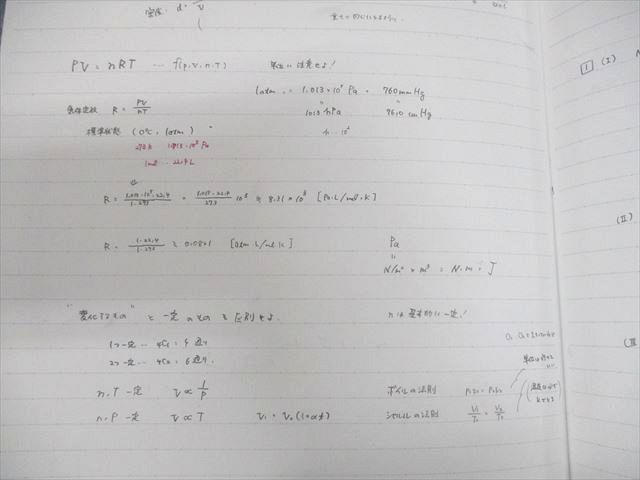 密度: d =
PV = nRT … f(P,V,n,T) 単位に注意せよ!
1atm = 1.013×10⁵ Pa = 760mmHg
1013 hPa 76.0 cmHg
気体定数 R = PV/nT h … 10²
標準状態 (0℃, 1atm)
273K 1.013×10⁵ Pa
1mol … 22.4L
R = 1.013×10⁵×22.4/1×273 = 1.013×22.4/273 10⁵ ≒ 8.31×10³ [Pa·L/mol·K]
R = 1×22.4/1×273 ≒ 0.0821 [atm·L/mol·K]
Pa
N/m² × m³ = N·m = J
"変化するもの" と 一定のものを区別せよ. nは基本的に一定!
1つ一定 … ₄C₁ = 4通り
2つ一定 … ₄C₂ = 6通り.
n, T 一定 V ∝ 1/P ボイルの法則 P₁V₁ = P₂V₂
n, P 一定 V ∝ T V₁ = V₀(1+αt) シャルルの法則 V₁/T₁ = V₂/T₂
1 (I)
(II)
(III